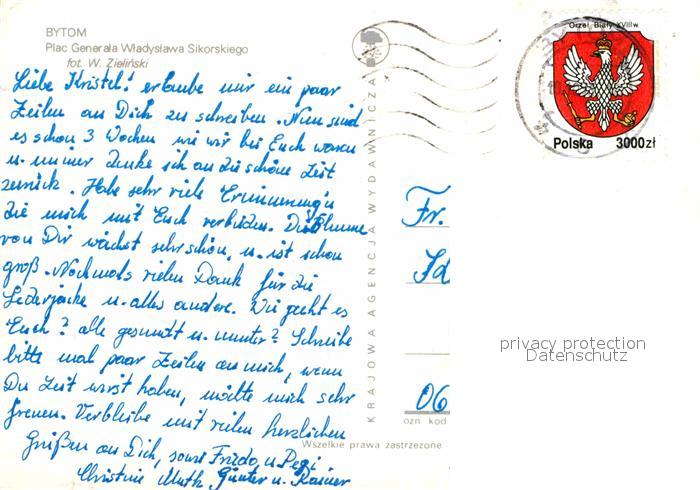 BYTOM
Plac Generała Władysława Sikorskiego
fot. W. Zieliński
Liebe Kristel! erlaube mir ein paar
Zeilen an Dich zu schreiben. Nun sind
es schon 3 Wochen wie wir bei Euch waren
u. immer denke ich an die schöne Zeit
zurück. Habe sehr viele Erinnerung's
die mich mit Euch verbinden. Die Blume
von Dir wächst sehr schön, u. ist schon
groß. Nochmals vielen Dank für die
Lederjacke u. alles andere. Wie geht es
Euch? alle gesundt u. munter? Schreibe
bitte mal paar Zeilen an mich, wenn
Du Zeit wirst haben, möchte mich sehr
freuen. Verbleibe mit vielen herzlichen
Grüßen an Dich, sowie Frido u. Pegi
Christine Muth, Günter u. Rainer
KRAJOWA AGENCJA WYDAWNICZA
Orzeł Biały XVIII w.
Polska 3000 zł
Fr.
Id
06
ozn kod
Wszelkie prawa zastrzeżone
privacy protection
Datenschutz